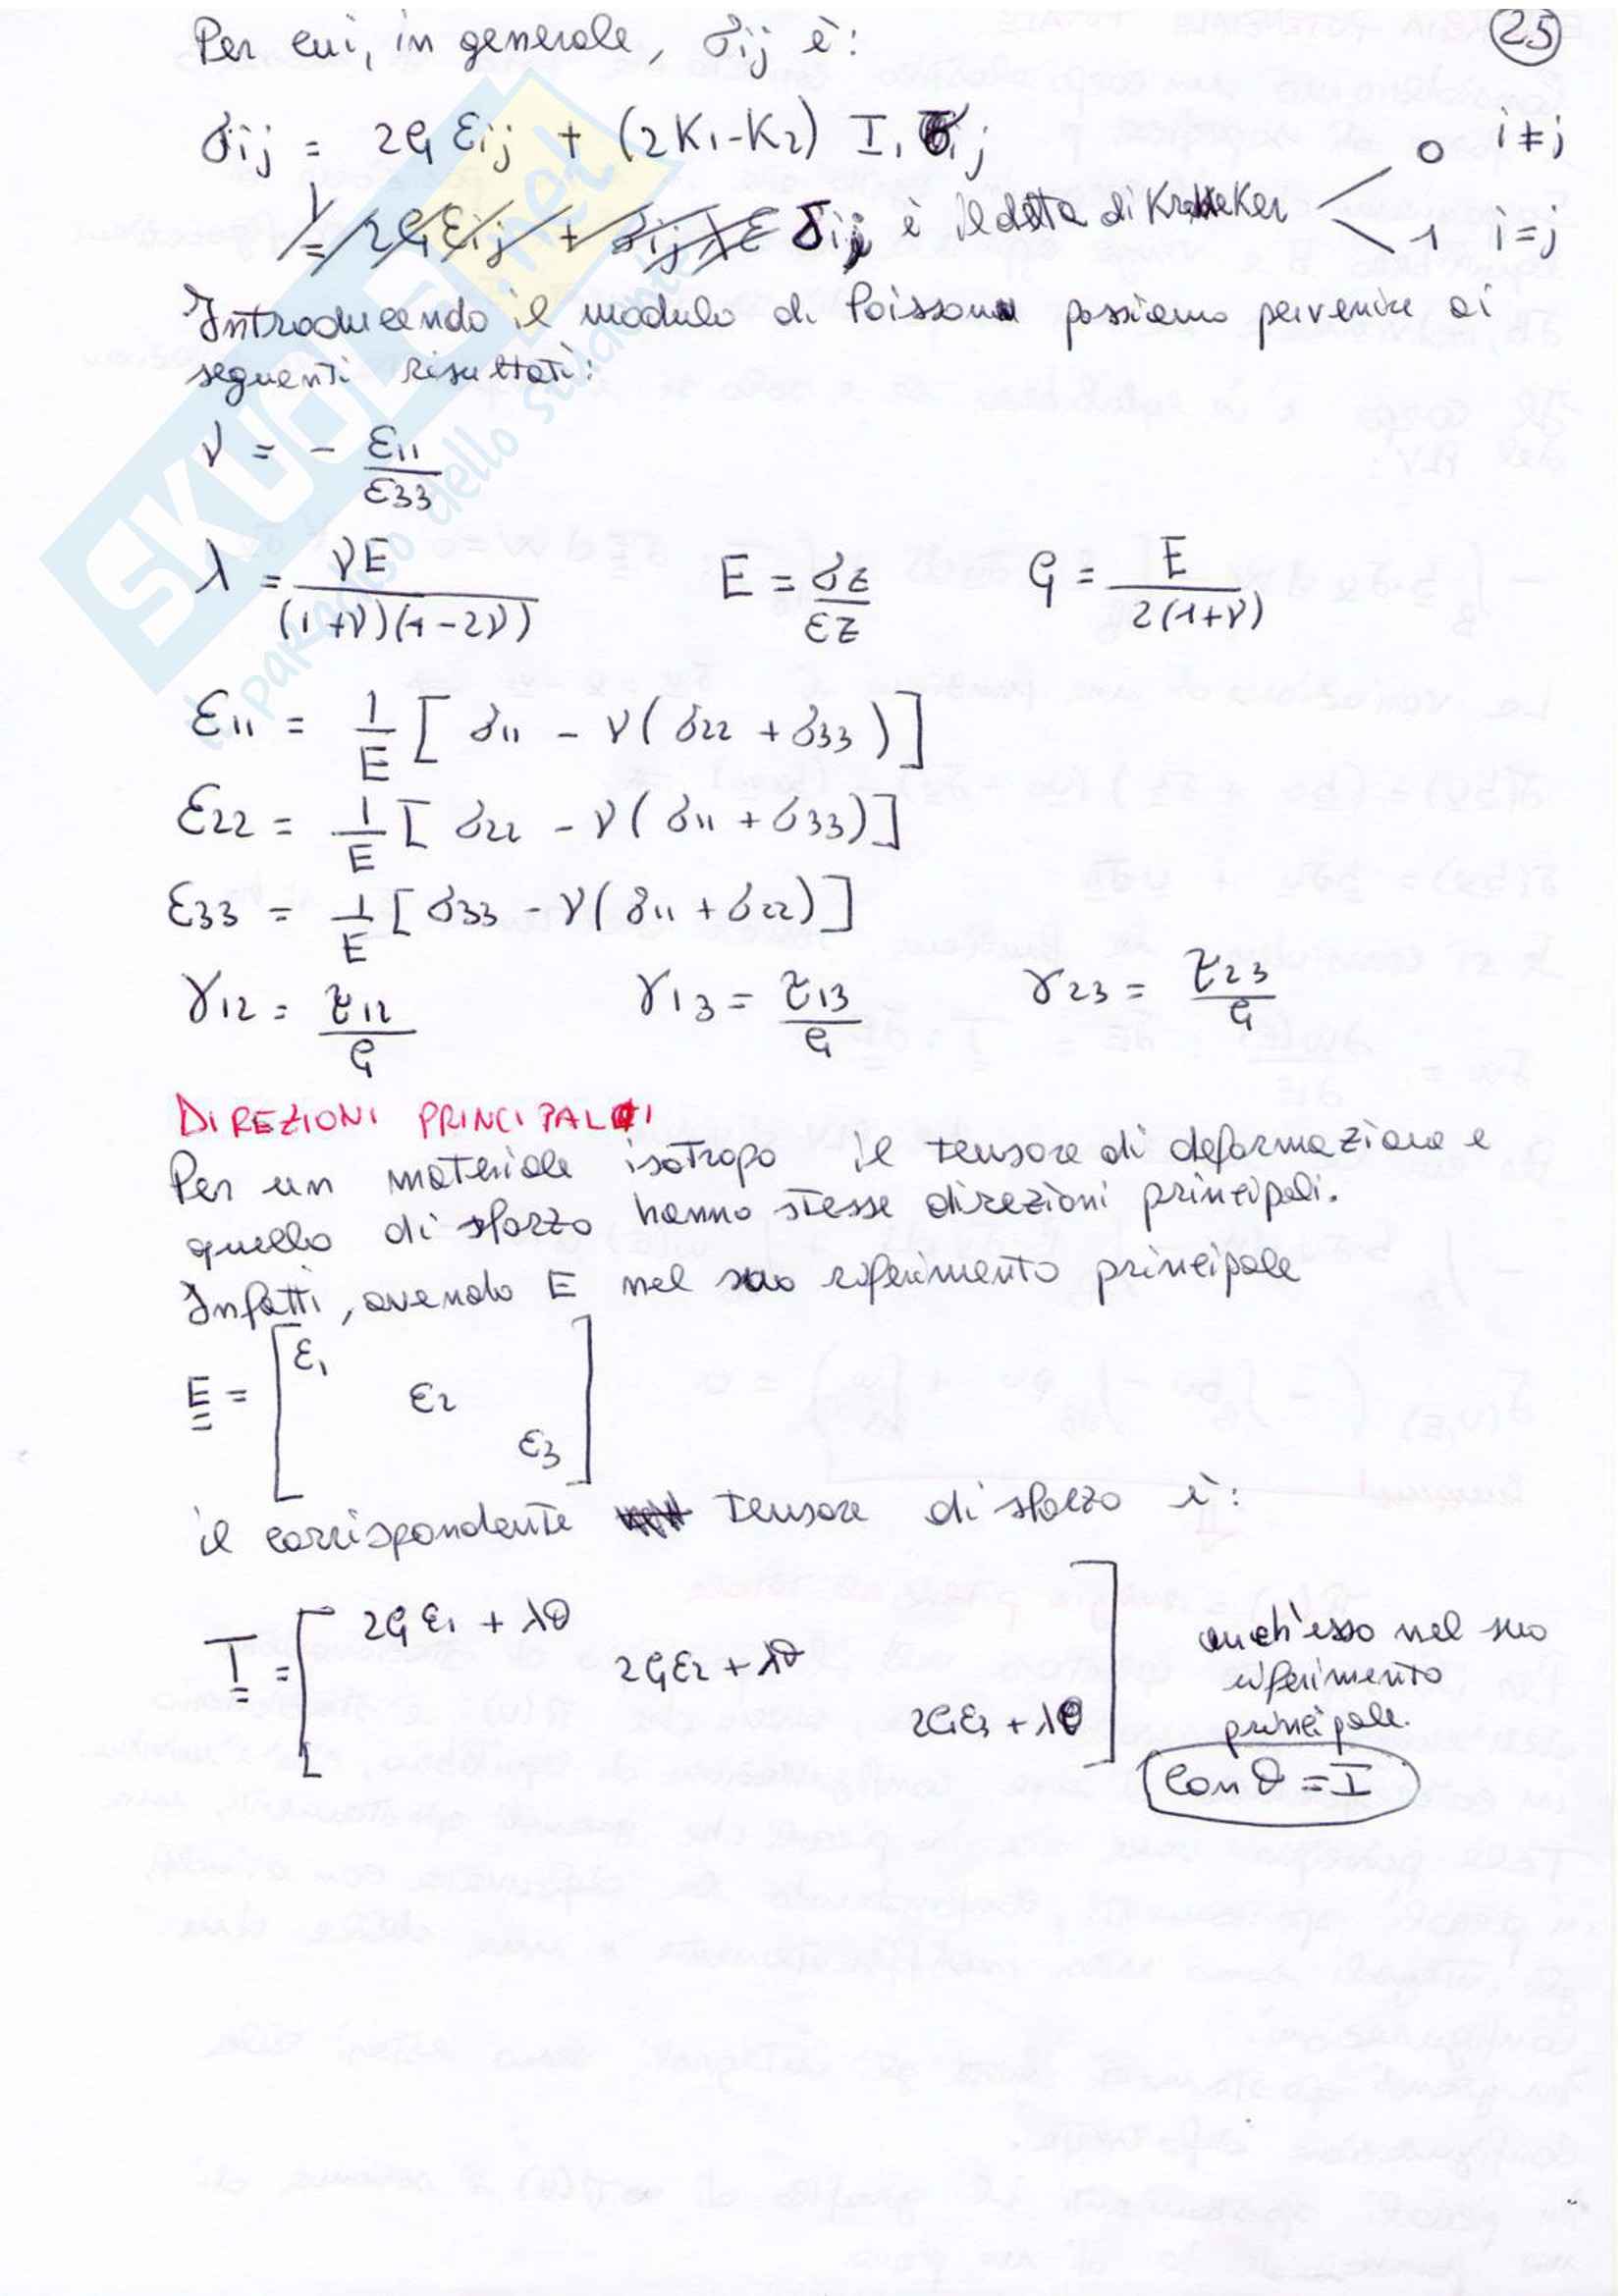 Per cui, in generale, σij è:
25
σij = 2G εij + (2K1-K2) I1 δij
δij è il delta di Kroneker
0 i≠j
1 i=j
Introducendo il modulo di Poisson possiamo pervenire ai
seguenti risultati:
ν = - ε11/ε33
λ = νE/((1+ν)(1-2ν)) E = σz/εz G = E/(2(1+ν))
ε11 = 1/E [σ11 - ν(σ22 + σ33)]
ε22 = 1/E [σ22 - ν(σ11 + σ33)]
ε33 = 1/E [σ33 - ν(σ11 + σ22)]
γ12 = τ12/G γ13 = τ13/G γ23 = τ23/G
DIREZIONI PRINCIPALI
Per un materiale isotropo il tensore di deformazione e
quello di sforzo hanno stesse direzioni principali.
Infatti, avendo E nel suo riferimento principale
E = [ε1
ε2
ε3]
il corrispondente tensore di sforzo è:
T = [2Gε1 + λθ
2Gε2 + λθ
2Gε3 + λθ]
anch'esso nel suo
riferimento
principale.
con θ = I
SKUOLA.net
il paradiso dello studente